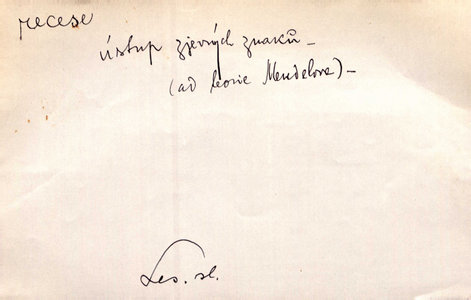 recese
ústup zjevných znaků –
(ad teorie Mendelova) –
Les. sl.